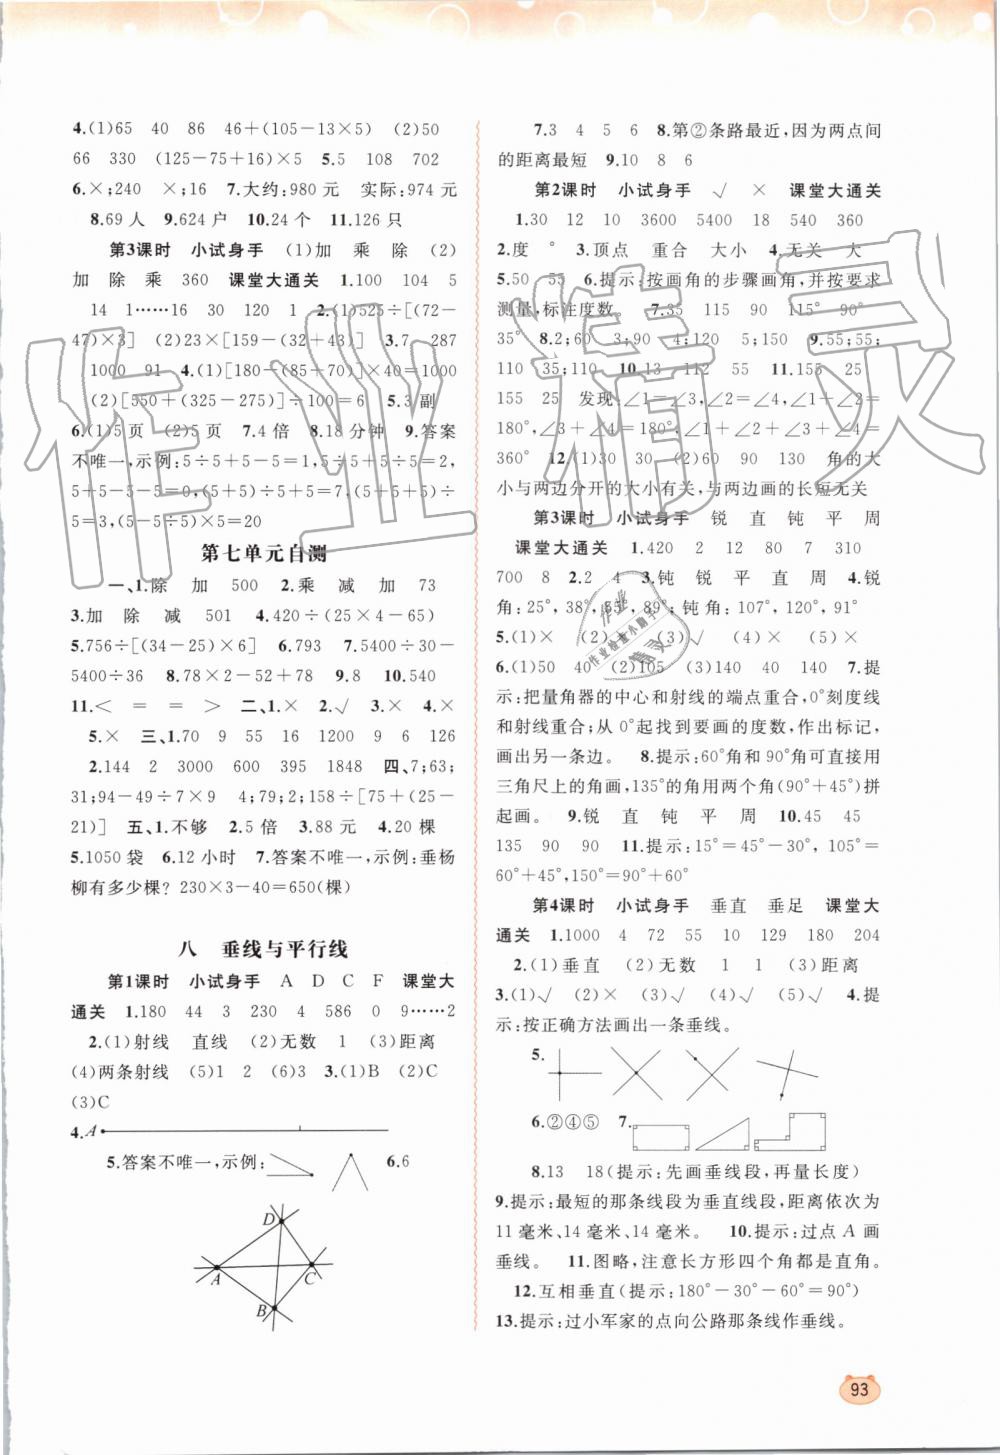 4.(1)65 40 86 46+(105-13×5) (2)50
66 330 (125-75+16)×5 5.5 108 702
6.×;240 ×;16 7.大约:980元 实际:974元
8.69人 9.624户 10.24个 11.126只
第3课时 小试身手 (1)加 乘 除 (2)
加 除 乘 360 课堂大通关 1.100 104 5
14 1……16 30 120 1 2.(1)525÷[(72-
47)×3] (2)23×[159-(32+43)] 3.7 287
1000 91 4.(1)[180-(85+70)]×40=1000
(2)[550+(325-275)]÷100=6 5.3副
6.(1)5页 (2)5页 7.4倍 8.18分钟 9.答案
不唯一,示例:5÷5+5-5=1,5÷5+5÷5=2,
5+5-5-5=0,(5+5)÷5+5=7,(5+5+5)÷
5=3,(5-5÷5)×5=20
第七单元自测
一、1.除 加 500 2.乘 减 加 73
3.加 除 减 501 4.420÷(25×4-65)
5.756÷[(34-25)×6] 6.793 7.5400-30÷
5400÷36 8.78×2-52+78 9.8 10.540
11.< = = > 二、1.× 2.√ 3.× 4.×
5.× 三、1.70 9 55 16 1200 9 6 126
2.144 2 3000 600 395 1848 四、7;63;
31;94-49÷7×9 4;79;2;158÷[75+(25-
21)] 五、1.不够 2.5倍 3.88元 4.20棵
5.1050袋 6.12小时 7.答案不唯一,示例:垂杨
柳有多少棵? 230×3-40=650(棵)
八 垂线与平行线
第1课时 小试身手 A D C F 课堂大
通关 1.180 44 3 230 4 586 0 9……2
2.(1)射线 直线 (2)无数 1 (3)距离
(4)两条射线 (5)1 2 (6)3 3.(1)B (2)C
(3)C
4.A
5.答案不唯一,示例: 6.6
D
A
C
B
7.3 4 5 6 8.第②条路最近,因为两点间
的距离最短 9.10 8 6
第2课时 小试身手 √ × 课堂大通关
1.30 12 10 3600 5400 18 540 360
2.度 ° 3.顶点 重合 大小 4.无关 大
5.50 55 6.提示:按画角的步骤画角,并按要求
测量,标注度数。 7.35 115 90 115° 90°
35° 8.2;60 3;90 4;120 5;150 9.55;55;
110 35;110 10.13 112 55 11.155 25
155 25 发现:∠1=∠3,∠2=∠4,∠1+∠2=
180°,∠3+∠4=180°,∠1+∠2+∠3+∠4=
360° 12.(1)30 30 (2)60 90 130 角的大
小与两边分开的大小有关,与两边画的长短无关
第3课时 小试身手 锐 直 钝 平 周
课堂大通关 1.420 2 12 80 7 310
700 8 2.2 4 3.钝 锐 平 直 周 4.锐
角:25°,38°,55°,89°;钝角:107°,120°,91°
5.(1)× (2) (3)√ (4)× (5)×
6.(1)50 40 (2)105 (3)140 40 140 7.提
示:把量角器的中心和射线的端点重合,0°刻度线
和射线重合;从0°起找到要画的度数,作出标记,
画出另一条边。 8.提示:60°角和90°角可直接用
三角尺上的角画,135°的角用两个角(90°+45°)拼
起画。 9.锐 直 钝 平 周 10.45 45
135 90 90 11.提示:15°=45°-30°,105°=
60°+45°,150°=90°+60°
第4课时 小试身手 垂直 垂足 课堂大
通关 1.1000 4 72 55 10 129 180 204
2.(1)垂直 (2)无数 1 1 (3)距离
3.(1)√ (2)× (3)√ (4)√ (5)√ 4.提
示:按正确方法画出一条垂线。
5.
6.②④⑤ 7.
8.13 18(提示:先画垂线段,再量长度)
9.提示:最短的那条线段为垂直线段,距离依次为
11毫米、14毫米、14毫米。 10.提示:过点A画
垂线。 11.图略,注意长方形四个角都是直角。
12.互相垂直(提示:180°-30°-60°=90°)
13.提示:过小军家的点向公路那条线作垂线。
93
作业精灵
作业
作业检查小助手
精灵